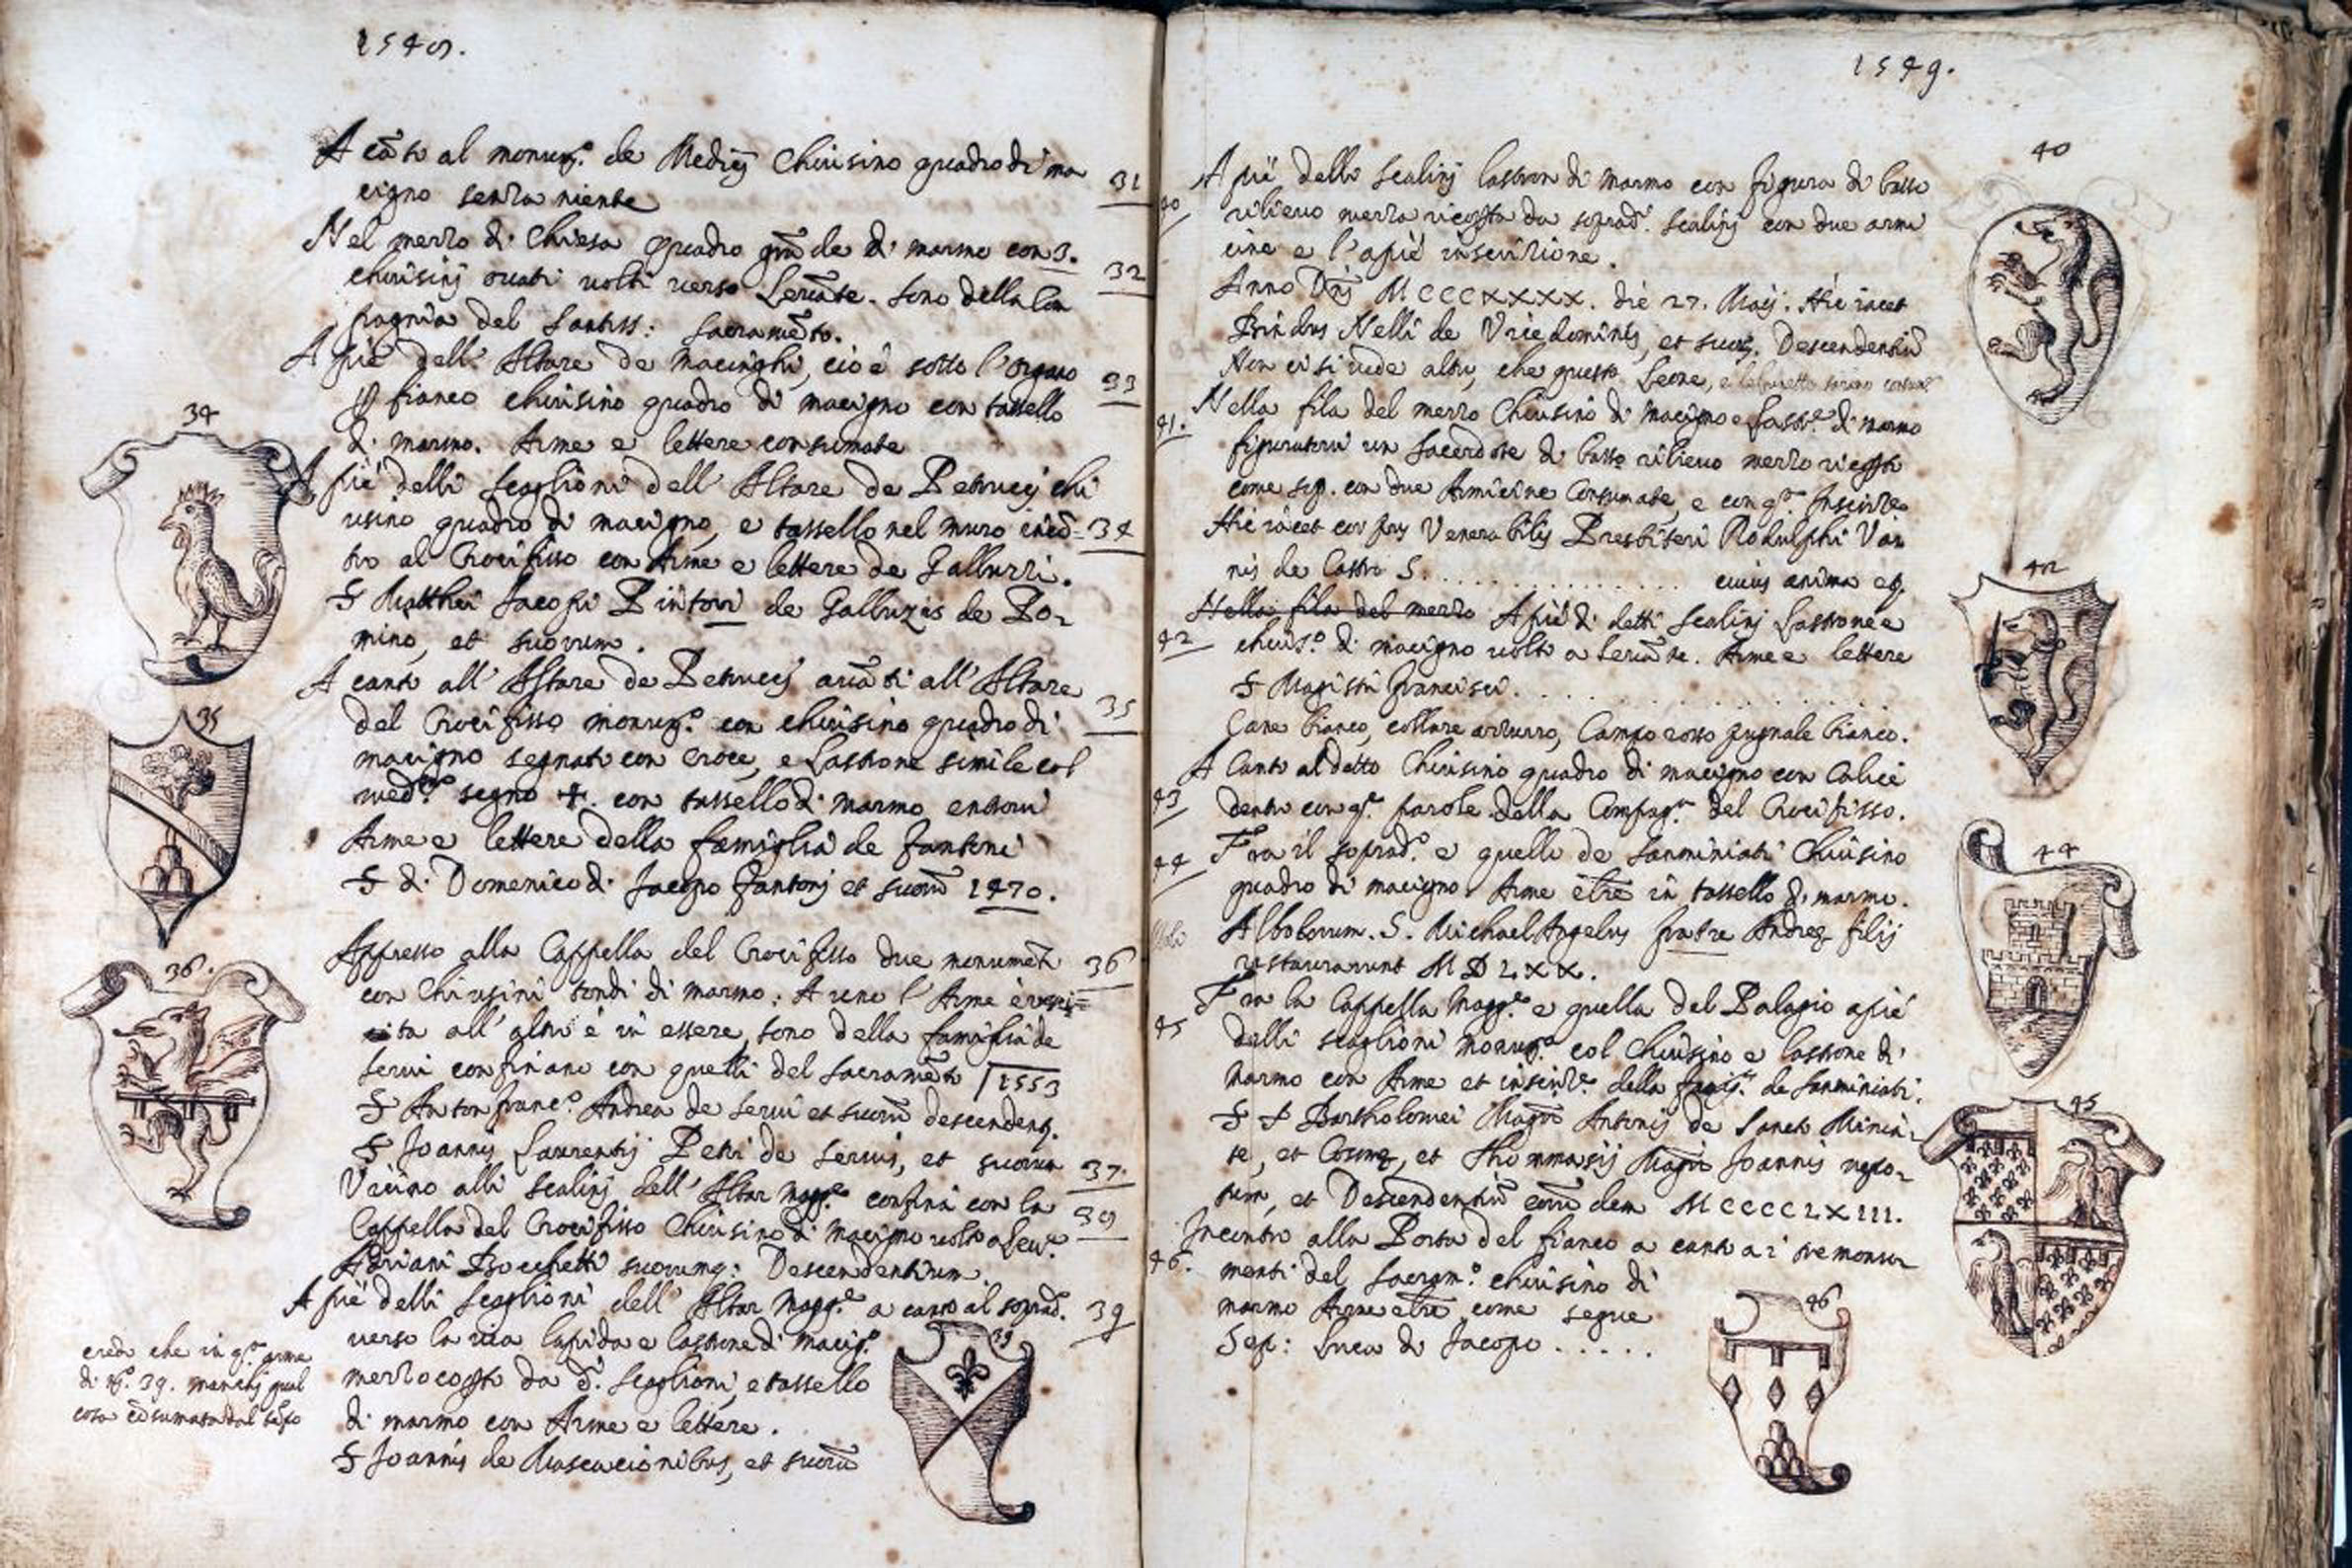 1548.
A cāto al monumᵗᵒ. de Medicj Chiusino quadro di ma
cigno senza niente
31
Nel mezzo di Chiesa quadro grāde di marmo con 3.
chiusinj ouati uolti uerso Leuāte. sono della Com
32
pagnia del Santiss: Sacramēto.
A piè dell' Altare de Macinghi, cio è sotto l'organo
33
fianco chiusino quadro di macigno con tassello
di marmo. Arme e lettere consumate
34
A piè delli scaglioni dell' Altare de Petruccj chi
usino quadro di macigno, e tassello nel muro incō=
34
tro al Crocifisso con Arme e lettere de Galluzzi.
S Matthei Jacopi Pintori de Galluzis de Po-
mino, et suorum.
A canto all' Altare de Petruccj auāti all' Altare
35
del Crocifisso monumᵗᵒ. con chiusino quadro di
35
macigno segnato con croce, e Lastrone simile col
med.ᵐᵒ segno +. con tassello di marmo entroui
Arme e lettere della famiglia de Fantoni
S di Domenico di Jacopo Fantonj et suorū 1470.
Appresso alla Cappella del Crocifisso due monumēti
36
36.
con Chiusini tondi di marmo: A uno l' Arme è
ita all' altro è in essere, sono della famiglia de
Serui confinano con quelli del Sacramēto 1553
S Anton franc.ᵒ Andrea de Serui et suorū descendent.
S Joannis Laurentij Petri de Seruis, et suorum
Vicino alli scalinj dell' Altar Magg.ʳᵉ confina con la
37.
Cappella del Crocifisso Chiusino di Macigno uolto a Leu.ᵗᵉ
38
Adriani Bocchetti suorumq: Descendentium.
A piè delli scaglioni dell' Altar Magg.ʳᵉ a canto al soprad.
39
uerso la uia lapida e lastrone di macig.ⁿᵒ
39
mezzo coperto da d. scaglioni, e tassello
di marmo con Arme e lettere.
S Joannis de Mascacionibus, et suorū
credo che in q.ᵃ arme
di N.º 39. manchj qual
cosa cōsumata dal tēpo
1549.
40
A piè delli scalinj lastron di marmo con figura di basso
40
rilieuo mezza ricoperta da soprad. scalinj con due armi
cine e l'a piè inscrizione.
Anno Dñj MCCCXXXX. die 27. Maij. Hic iacet
Bindus Nelli de Vicedominis, et suor. Descendentiū
Non ci si uede altro, che questo Leone,
Nella fila del mezzo Chiusino di macigno e Lastr.ᵉ di marmo
41.
figuratoui un sacerdote di basso rilieuo mezzo ricoperto
come sop. con due Armicine Consumate, e con q.ᵃ Inscriz.ᵉ
Hic iacet corpus Venerabilis Presbiteri Rodulphi Van
nis de Castro S. . . . . . . . . . . . . . . . cuius anima
Nella fila del mezzo A piè di detti scalinj Lastrone e
42
42
chius.º di macigno uolto a Leuāte. Arme e lettere
S Magistri Francisci. . . . . . . . . . . . .
Cane bianco, collare azzurro, Campo rosso pugnale bianco.
A Canto al detto Chiusino quadro di macigno con Calice
43
dentro con q.ᵉ parole della Compag.ⁱᵃ del Crocifisso.
Fra il soprad.º e quelli de Sanminiati Chiusino
44
44
quadro di macigno. Arme e lr̄e in tassello di marmo.
Albobrum. S. MichaelAngelus fratre Andreæ filij
restaurarunt MDLXX.
Fra la Cappella Magg.ʳᵉ e quella del Palagio a piè
45
delli scaglioni monum.ᵗᵒ col Chiusino e lastrone di
marmo con Arme et inscriz.ᵉ della famig.ᵃ de Sanminiati.
S Bartholomei Mag̃ri Antonij de Sancto Minia-
45
te, et Cosmę, et Thommasij Mag̃ri Joannis nepo-
tum, et Descendentiū eorūdem MCCCCLXIII.
Incontro alla Porta del fianco a canto a i tre monu
46.
menti del Sacram.ᵗᵒ chiusino di
marmo Arme e lr̄e come segue
46
Sep: Luca di Jacopo . . . . .